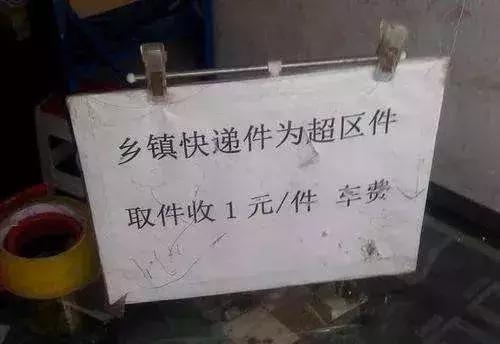 乡镇快递件为超区件
取件收1元/件 车费